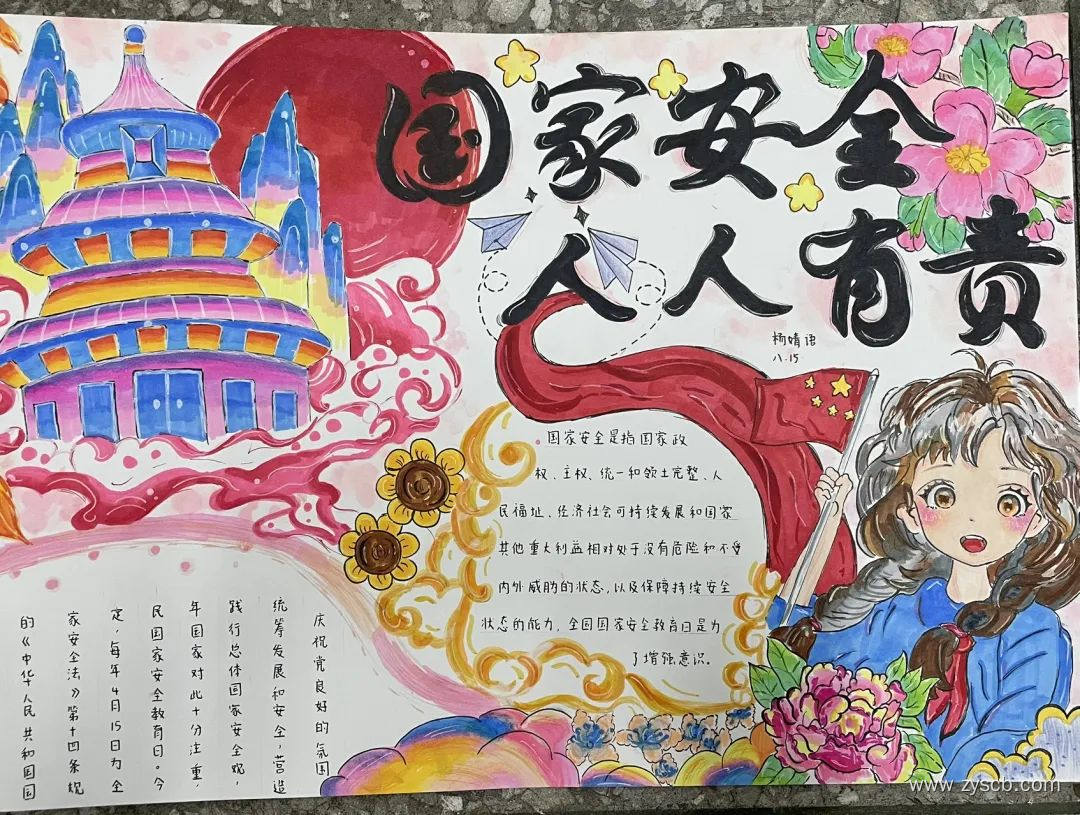 国家安全
人人有责
杨婧语
八.15
国家安全是指国家政
权、主权、统一和领土完整、人
民福址、经济社会可持续发展和国家
其他重大利益相对处于没有危险和不受
内外威胁的状态,以及保障持续安全
状态的能力,全国国家安全教育日是为
了增强意识。
的《中华人民共和国国
家安全法》第十四条规
定,每年4月15日为全
民国家安全教育日。今
年国家对此十分注重,
践行总体国家安全观,
统筹发展和安全,营造
庆祝党良好的氛围
www.zyscb.com